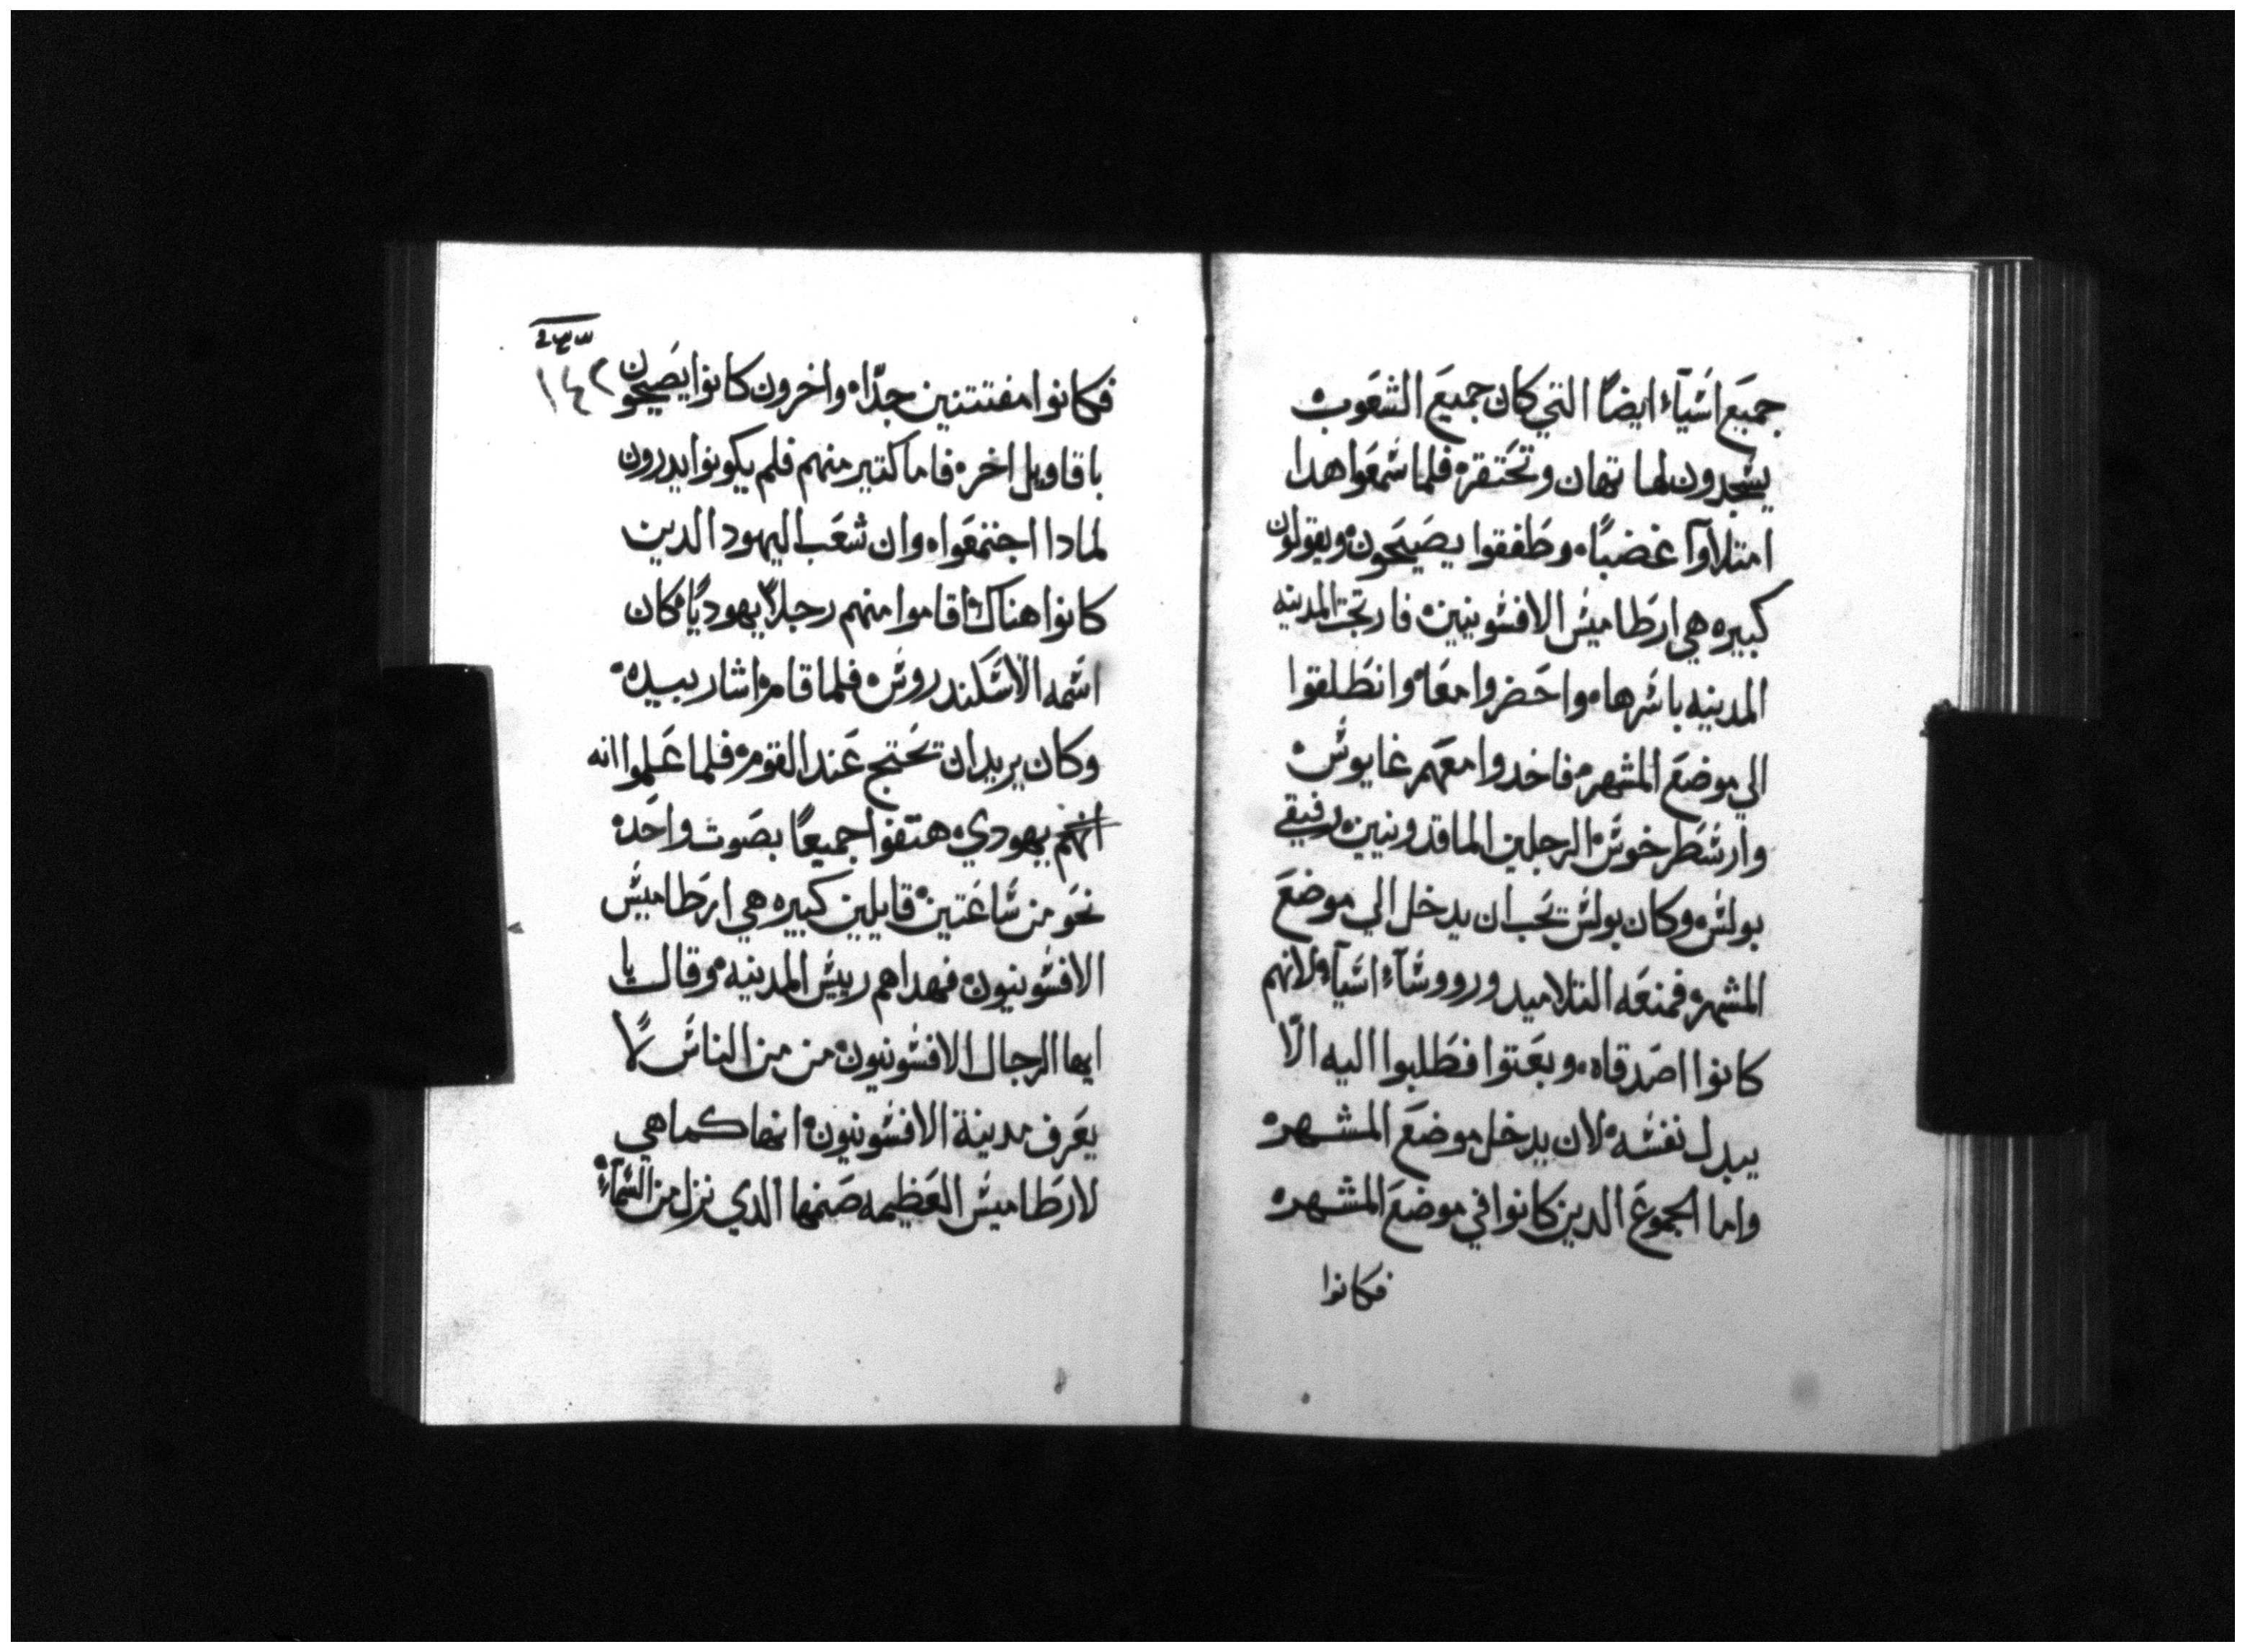 جميَع اشَيآء ايضًا التي كان جميعَ الشعَوب
يسَجدون لها تهان وتحَتقره فلما سَمعَوا هدا
امتلاوآ غضبًا ه وطَفقوا يصَيحَون ويقولون
كبيره هي ارطَاميسَ الافسَونيين ه فارتجت المدينه
المدينه باسَرها ه واحَضروا معَا ه وانطَلقوا
الي موضعَ المشهر ه فاخدوا معَهم غايوسَ ه
وارسَطَرخوسَ ه الرجلين الماقدونيين ه رفيقي
بولسَ ه وكان بولسَ يحَب ان يدخل الي موضعَ
المشهر ه فمنعَه التلاميد ورووسَآء اسَيآء لانهم
كانوا اصَدقاه ه وبعَتوا فطَلبوا اليه الّا
يبدل نفسَه ه لان يدخل موضعَ المشهر ه
واما الجموعَ الدين كانوا في موضعَ المشهر ه
فكانوا
١٤٢
فكانوا مفتتنين جدّا ه واخرون كانوا يصَيحَون
باقاويل اخر ه فاما كتير منهم فلم يكونوا يدرون
لمادا اجتمعَوا ه وان شعَب اليهود الدين
كانوا هناك اقاموا منهم رجلاً يهوديًا ه كان
اسَمه الاسَكندروسَ ه فلما قام ه اشار بيده ه
وكان يريد ان يحَتج عَند القوم ه فلما عَلموا انه
انهم يهودي ه هتفوا جميعًا بصَوت واحَد ه
نحَو من سَاعَتين ه قايلين كبيره هي ارطَاميسَ
الافسَونيون ه فهداهم رييسَ المدينه ه وقال يا
ايها الرجال الافسَونيون ه من من الناسَ لا
يعَرف مدينة الافسَونيون ه انها كما هي
لارطَاميسَ العَظيمه صَنمها الدي نزل من السَمآء ه